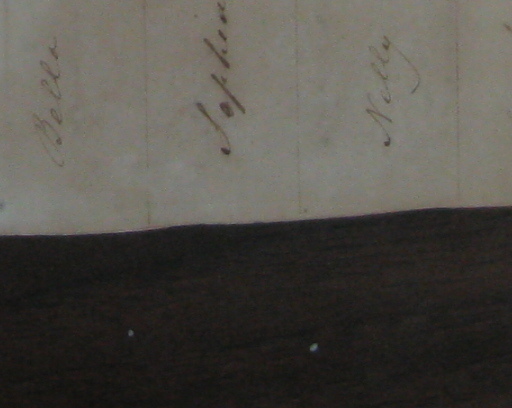 Bella
Sophia
Nelly